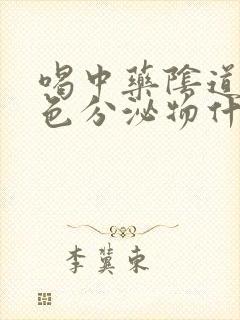 喝中藥陰道
色分泌物什
李冀東